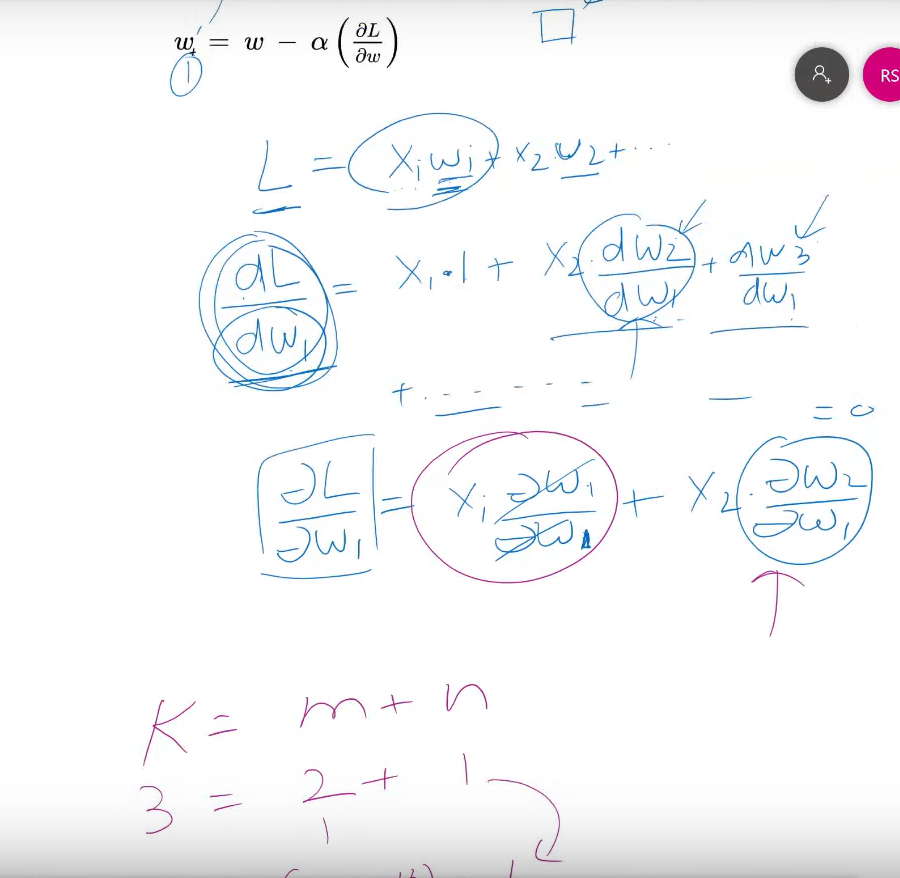 w₁' = w − α (∂L/∂w)
RS
L = x₁w₁ + x₂w₂ + ...
dL/dw₁ = x₁·1 + x₂·dw₂/dw₁ + dw₃/dw₁
+ ...... = — = 0
∂L/∂w₁ = x₁ ∂w₁/∂w₁ + x₂·∂w₂/∂w₁
K = m + n
3 = 2 + 1
1